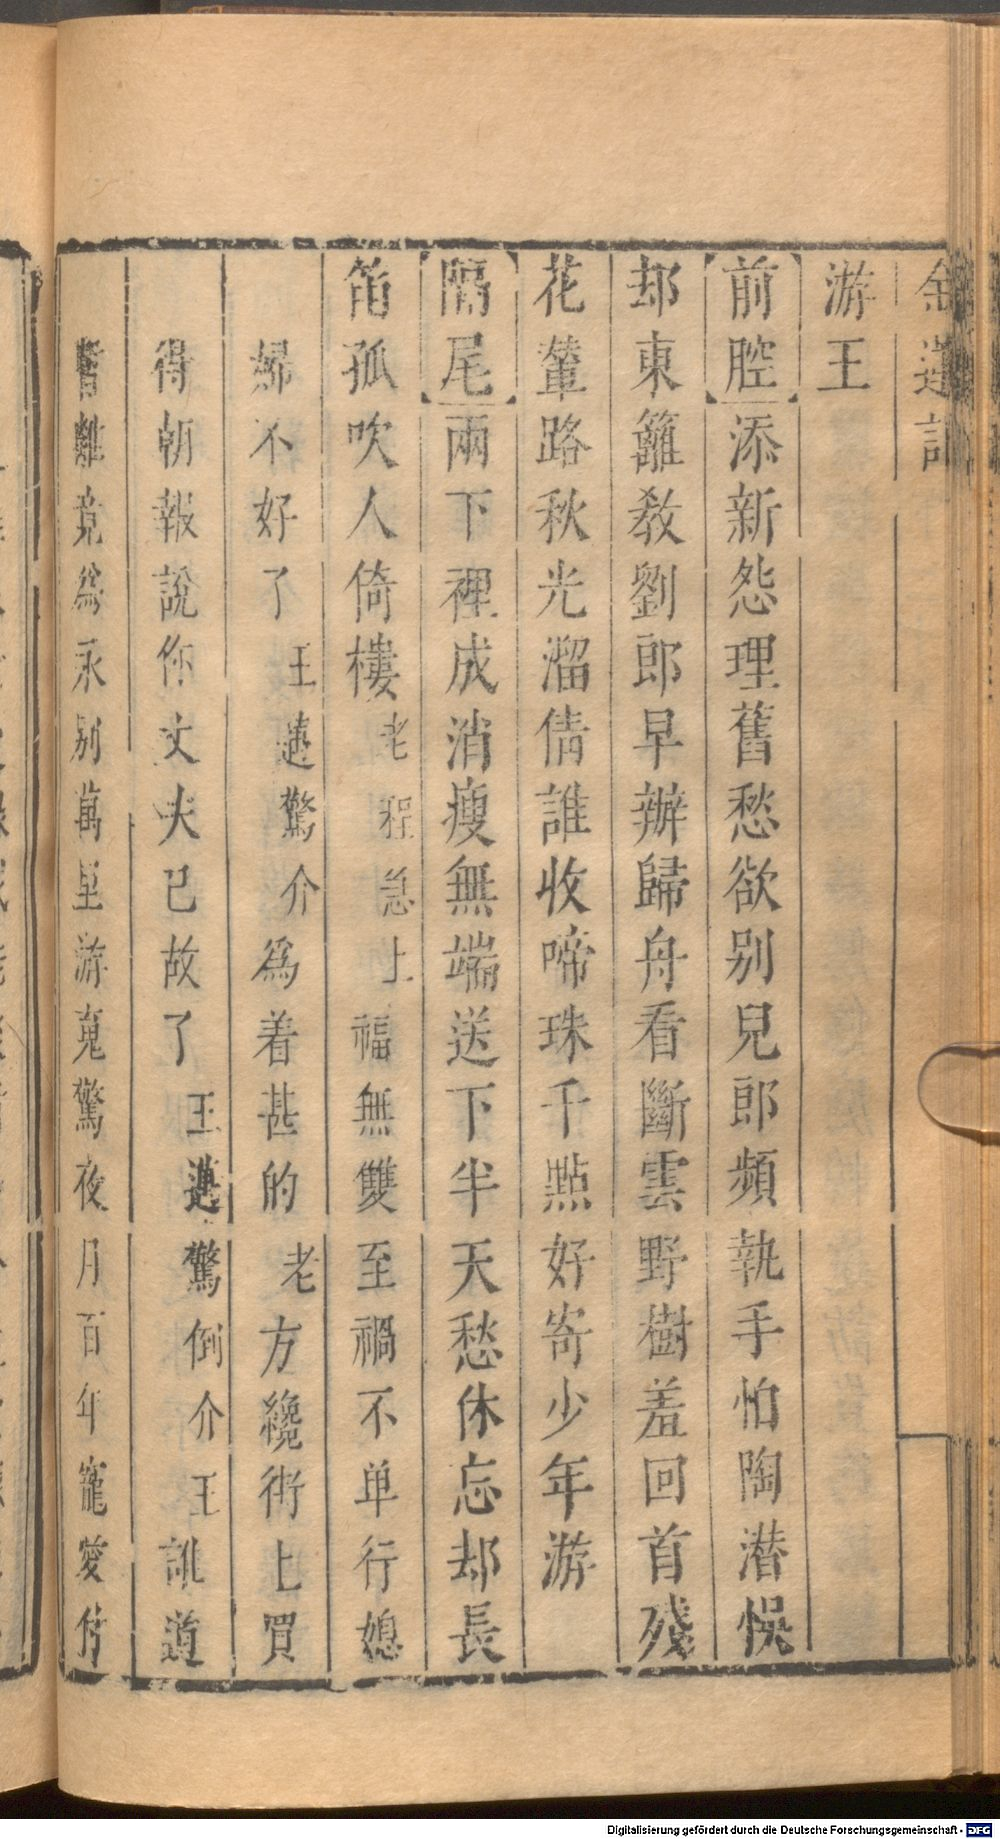 金蓮記
游王
前腔添新怨理舊愁欲别兒郎頻執手怕陶潜悞
却東籬教劉郎早辦歸舟看斷雲野樹羞回首殘
花輦路秋光溜倩誰收啼珠千點好寄少年游
隔尾兩下裡成消瘦無端送下半天愁休忘却長
笛孤吹人倚樓老程急上福無雙至禍不单行媳
婦不好了王遽驚介為着甚的老方纔街上買
得朝報說你丈夫已故了王遽驚倒介王訛道
暫離竟爲永别萬里游䰟驚夜月百年寵愛付
Digitalisierung gefördert durch die Deutsche Forschungsgemeinschaft - DFG